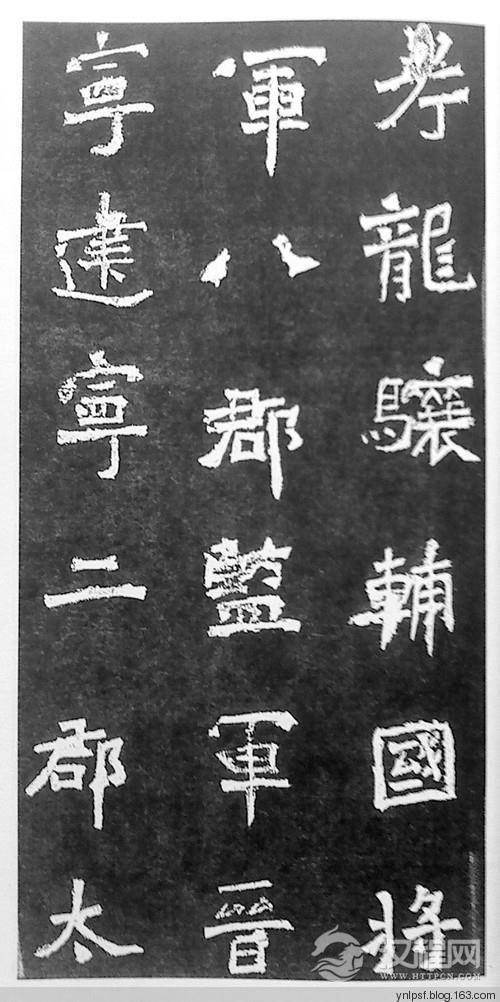 考龍驤輔國將
軍八郡監軍晉
寧建寧二郡太
汉程网
WWW.HTTPCN.COM
ynlpsf.blog.163.com